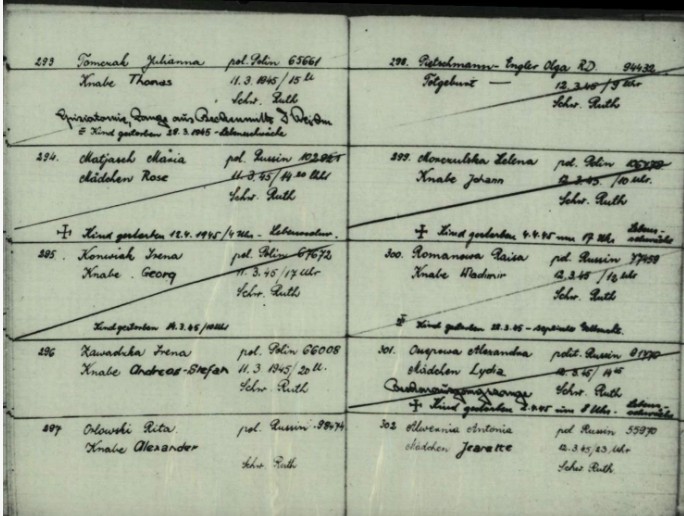 293 Tomczak Julianna pol. Polin 65661
Knabe Thomas 11.3.1945/15 U
Schw. Ruth
Episiotomie, Zange aus Beckenmitte
Kind gestorben 28.3.1945 - Lebensschwäche
294. Matjasch Maria pol. Russin
Mädchen Rose 11.3.45/14 20 Uhr
Schw. Ruth
Kind gestorben 12.4.1945/4 Uhr - Lebensschw.
295. Konieziak Irena pol. Polin 67672
Knabe Georg 11.3.45/17 Uhr
Schw. Ruth
Kind gestorben 14.3.45/10 Uhr
296 Zawadzka Irena pol. Polin 66008
Knabe Andreas-Stefan 11.3.1945/20 U.
Schw. Ruth
297 Orlowski Rita pol. Russin 98474
Knabe Alexander
Schw. Ruth
298. Pietschmann-Engler Olga R.D. 94432
Totgeburt — 12.3.45/9 Uhr
Schw. Ruth
299. Helena pol. Polin
Knabe Johann 12.3.45/10 Uhr.
Schw. Ruth
Kind gestorben 4.4.45 um 17 Uhr Lebens-
schwäche
300. Romanowa Raisa pol. Russin 77459
Knabe Wladimir 12.3.45
Schw. Ruth
Kind gestorben 28.3.45 -
301. Alexandra polit. Russin
Mädchen Lydia 12.3.45/14 45
Schw. Ruth
Beckenausgangszange
Kind gestorben um 8 Uhr. Lebens-
schwäche
302 Antonia pol Russin 55970
Mädchen Jeanette 12.3.45/23 Uhr
Schw. Ruth